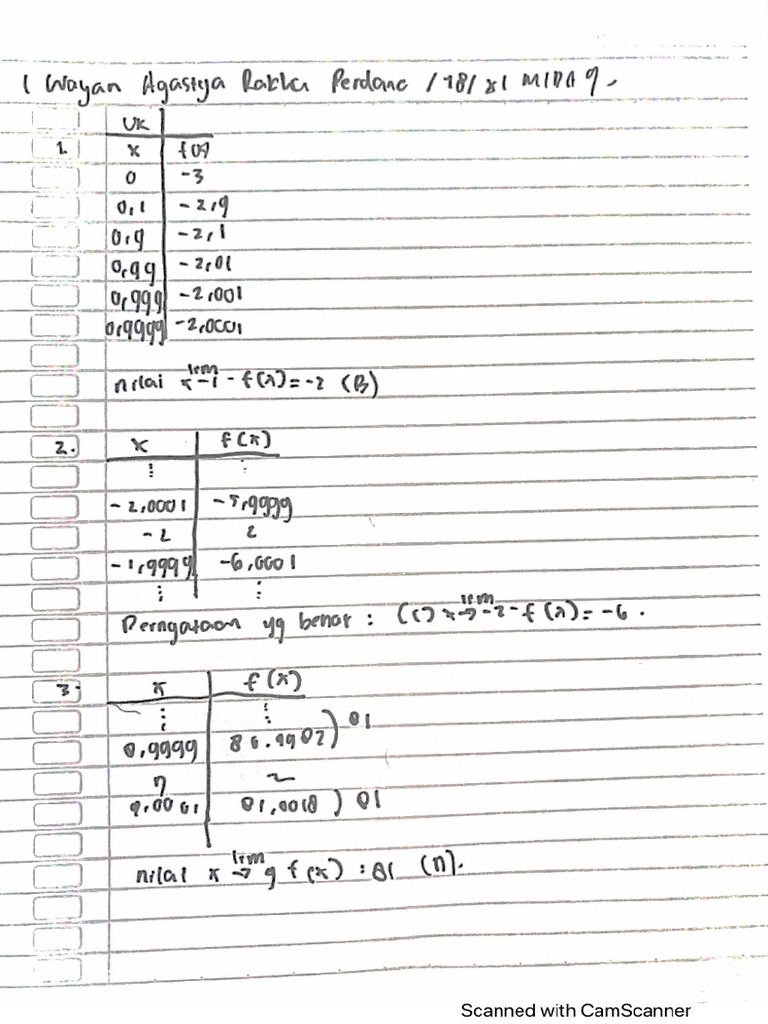 I Wayan Agastya Rakha Perdana / 18 / XI MIPA 9.
UK
1. x f(x)
0 -3
0,1 -2,9
0,9 -2,1
0,99 -2,01
0,999 -2,001
0,9999 -2,0001
nilai lim x→1- f(x) = -2 (B)
2. x f(x)
⋮ ⋮
-2,0001 -5,9999
-2 2
-1,9999 -6,0001
⋮ ⋮
Pernyataan yg benar : (C) lim x→-2- f(x) = -6.
3. x f(x)
⋮ ⋮
0,9999 80.9902 ) 81
9 2
9.0001 81,0018 ) 81
nilai lim x→9 f(x) : 81 (A).
Scanned with CamScanner